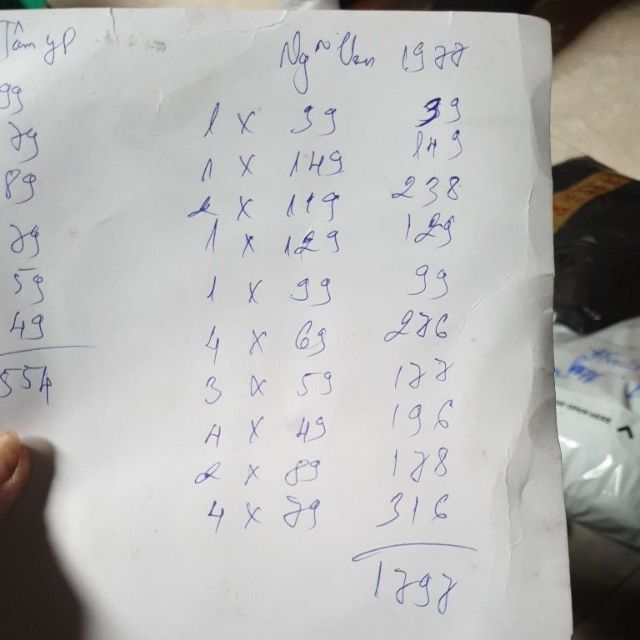 Tâm
99
79
89
79
59
49
554
Ng Van 1977
1 x 39 39
1 x 149 149
2 x 119 238
1 x 129 129
1 x 99 99
4 x 69 276
3 x 59 177
4 x 49 196
2 x 89 178
4 x 79 316
1797